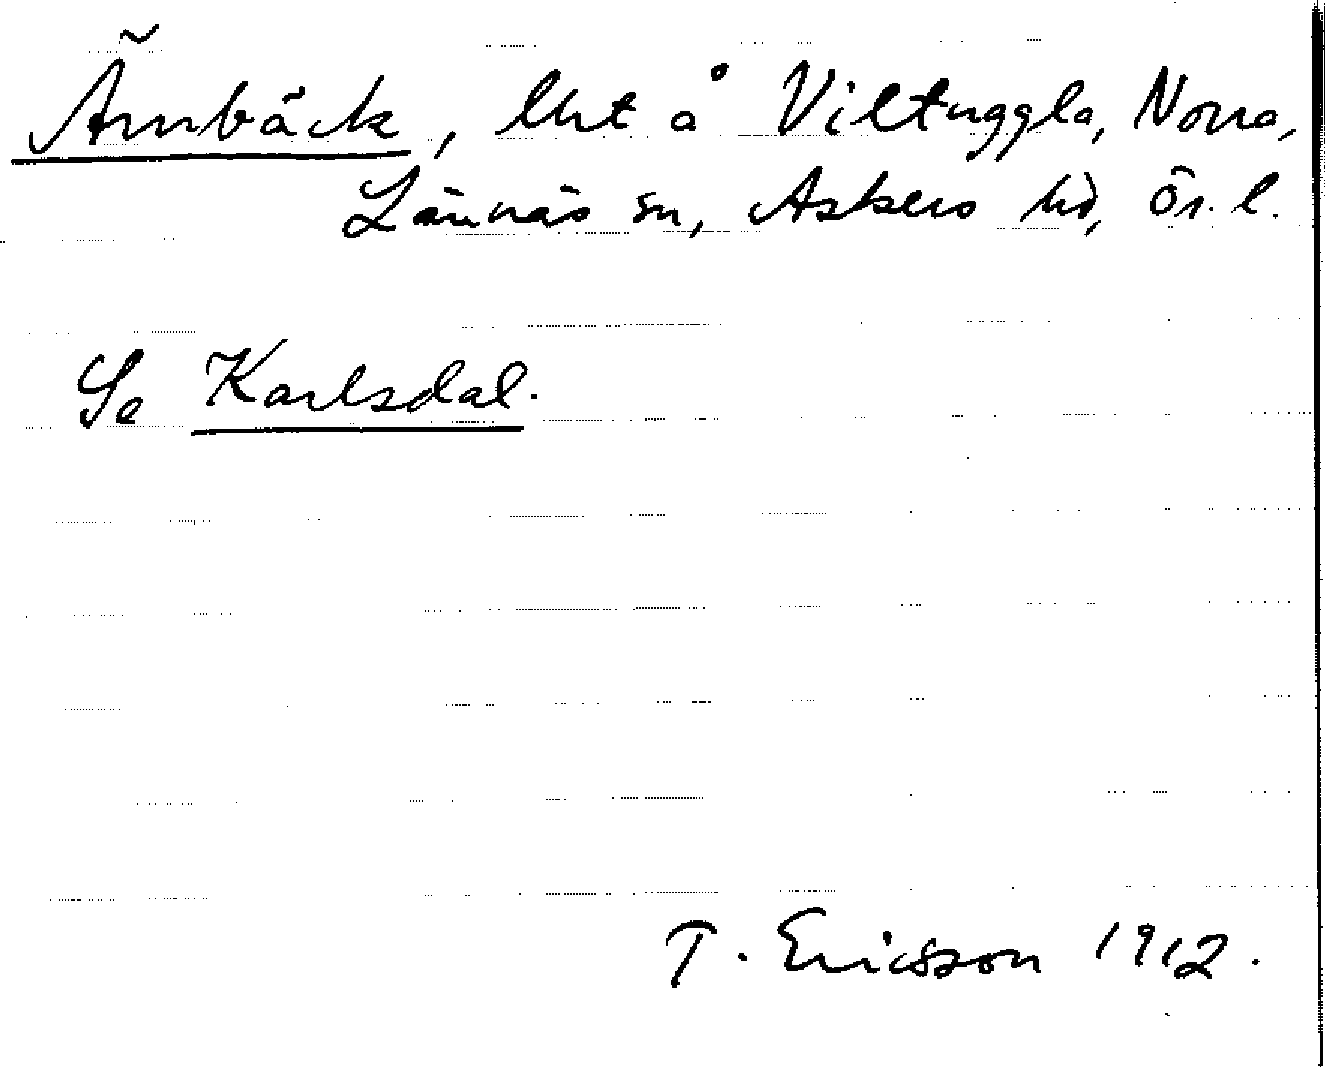 Ärnbäck, lht å Viltuggla, Norra,
Lännäs sn, Askers hd, Ör. l.
Se Karlsdal.
T. Ericsson 1912.